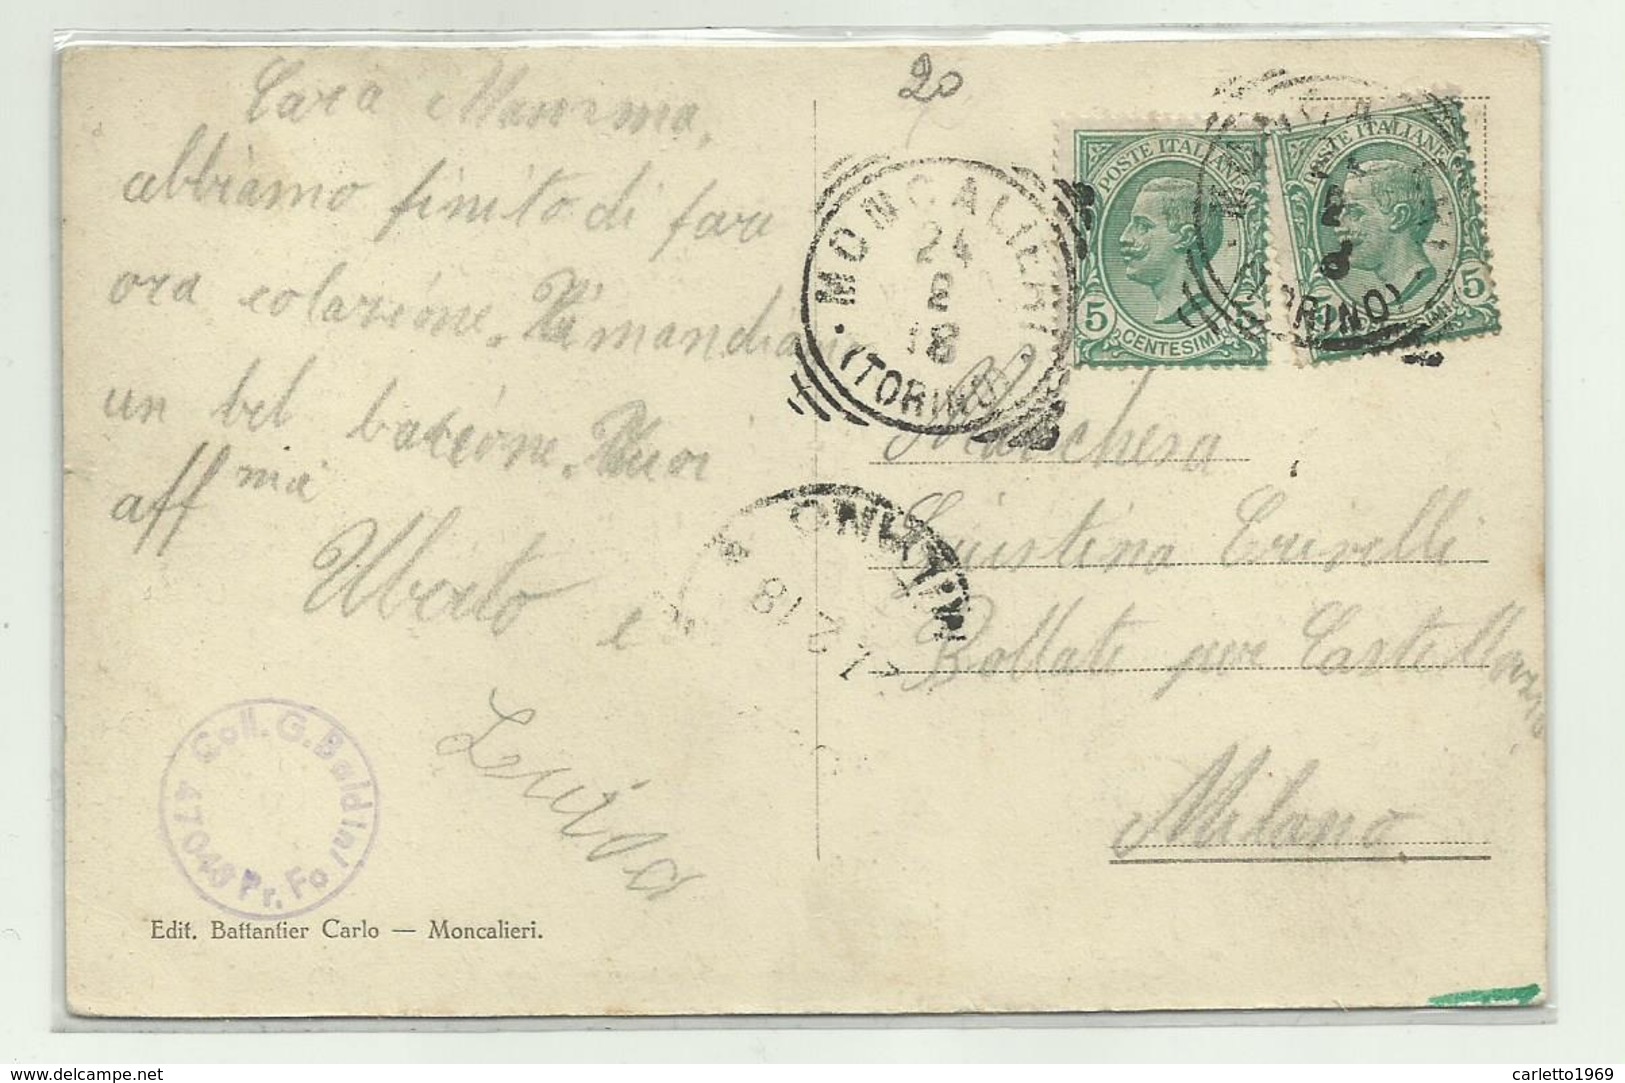 20
Cara Mamma,
abbiamo finito di fara
ora colazione. Ti mandiamo
un bel bacione. Tuoi
aff mi
Uberto e
Luisa
MONCALIERI
24
2
18
(TORINO)
POSTE ITALIANE
5 CENTESIMI 5
POSTE ITALIANE
5
(TORINO)
MILANO
2 18
Marchesa
Giustina Crivelli
Bollate per Castellazzo
Milano
Coll. G. Baldini
47040 Pr. Fo
Edit. Battantier Carlo — Moncalieri.
delcampe.net
carletto1969